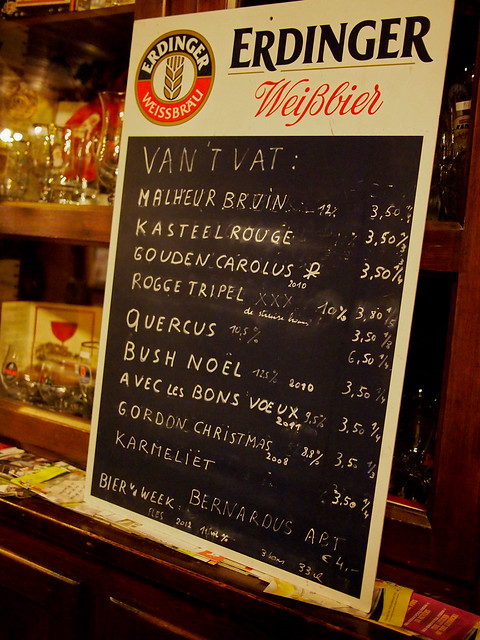 ERDINGER
WEISSBRÄU
ERDINGER
Weißbier
VAN'T VAT:
MALHEUR BRUIN 12% 3,50
KASTEEL ROUGE 3,50
GOUDEN CAROLUS 2010 3,50
ROGGE TRIPEL XXX 10% 3,80
3,50
QUERCUS 10,5% 6,50
BUSH NOËL 12,5% 2010 3,50
AVEC LES BONS VŒUX 9,5% 2011 3,50
GORDON CHRISTMAS 8,8% 2008 3,5
KARMELIËT 3,50
BIER v/d WEEK: BERNARDUS APT
FLES 2012 33cl € 4,-